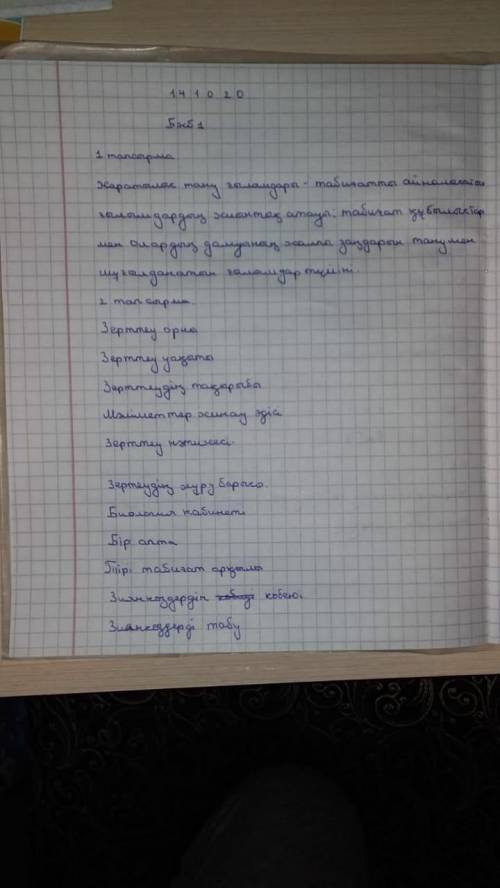 14 10 20
БжБ 1
1 тапсырма
Жаратылыс тану ғылымдары - табиғатты айналысатын
ғалымдардың жиынтық атауы; табиғат құбылыстар
мен олардың дамуының жалпы заңдарын танумен
шұғылданатын ғалымдар түпкіні.
2 тапсырма.
Зерттеу орны
Зерттеу уақыты
Зерттеудің тақырыбы
Мәліметтер жинау әдіс
Зерттеу нәтижесі.
Зертеудің жүру барысы.
Биология кабинеті
Бір апта
Пірі табиғат арқылы
Зиянкездердің көбею.
Зиянкездерді табу